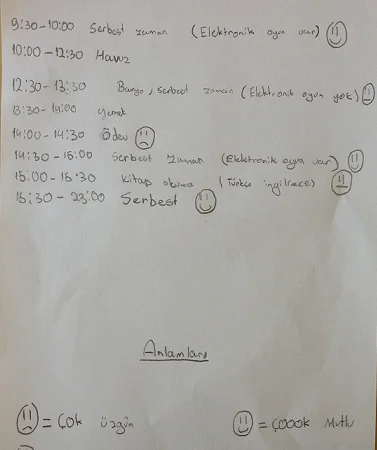 9:30-10:00 Serbest zaman (Elektronik oyun var)
10:00-12:30 Havuz
12:30-13:30 Banyo, serbest zaman (Elektronik oyun yok)
13:30-14:00 yemek
14:00-14:30 Ödev
14:30-15:00 Serbest zaman (Elektronik oyun var)
15:00-15:30 kitap okuma (Türkçe ingilrece)
15:30-23:00 Serbest
Anlamları
= Çok üzgün
= çoook Mutlu